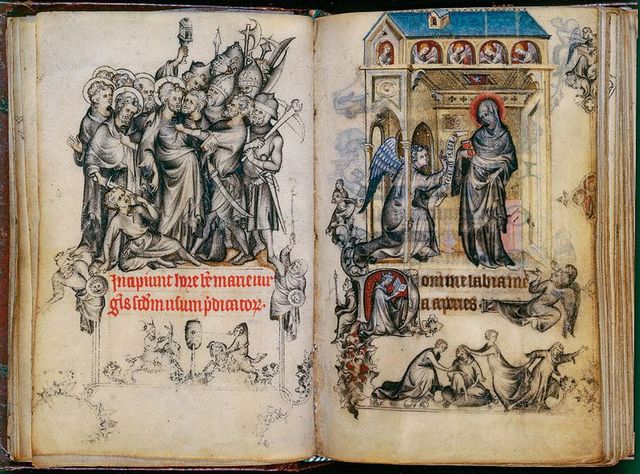 Incipiunt hore bē marie uir
gīs scdm usum p̄dicator.
Domine labia me
a aperies